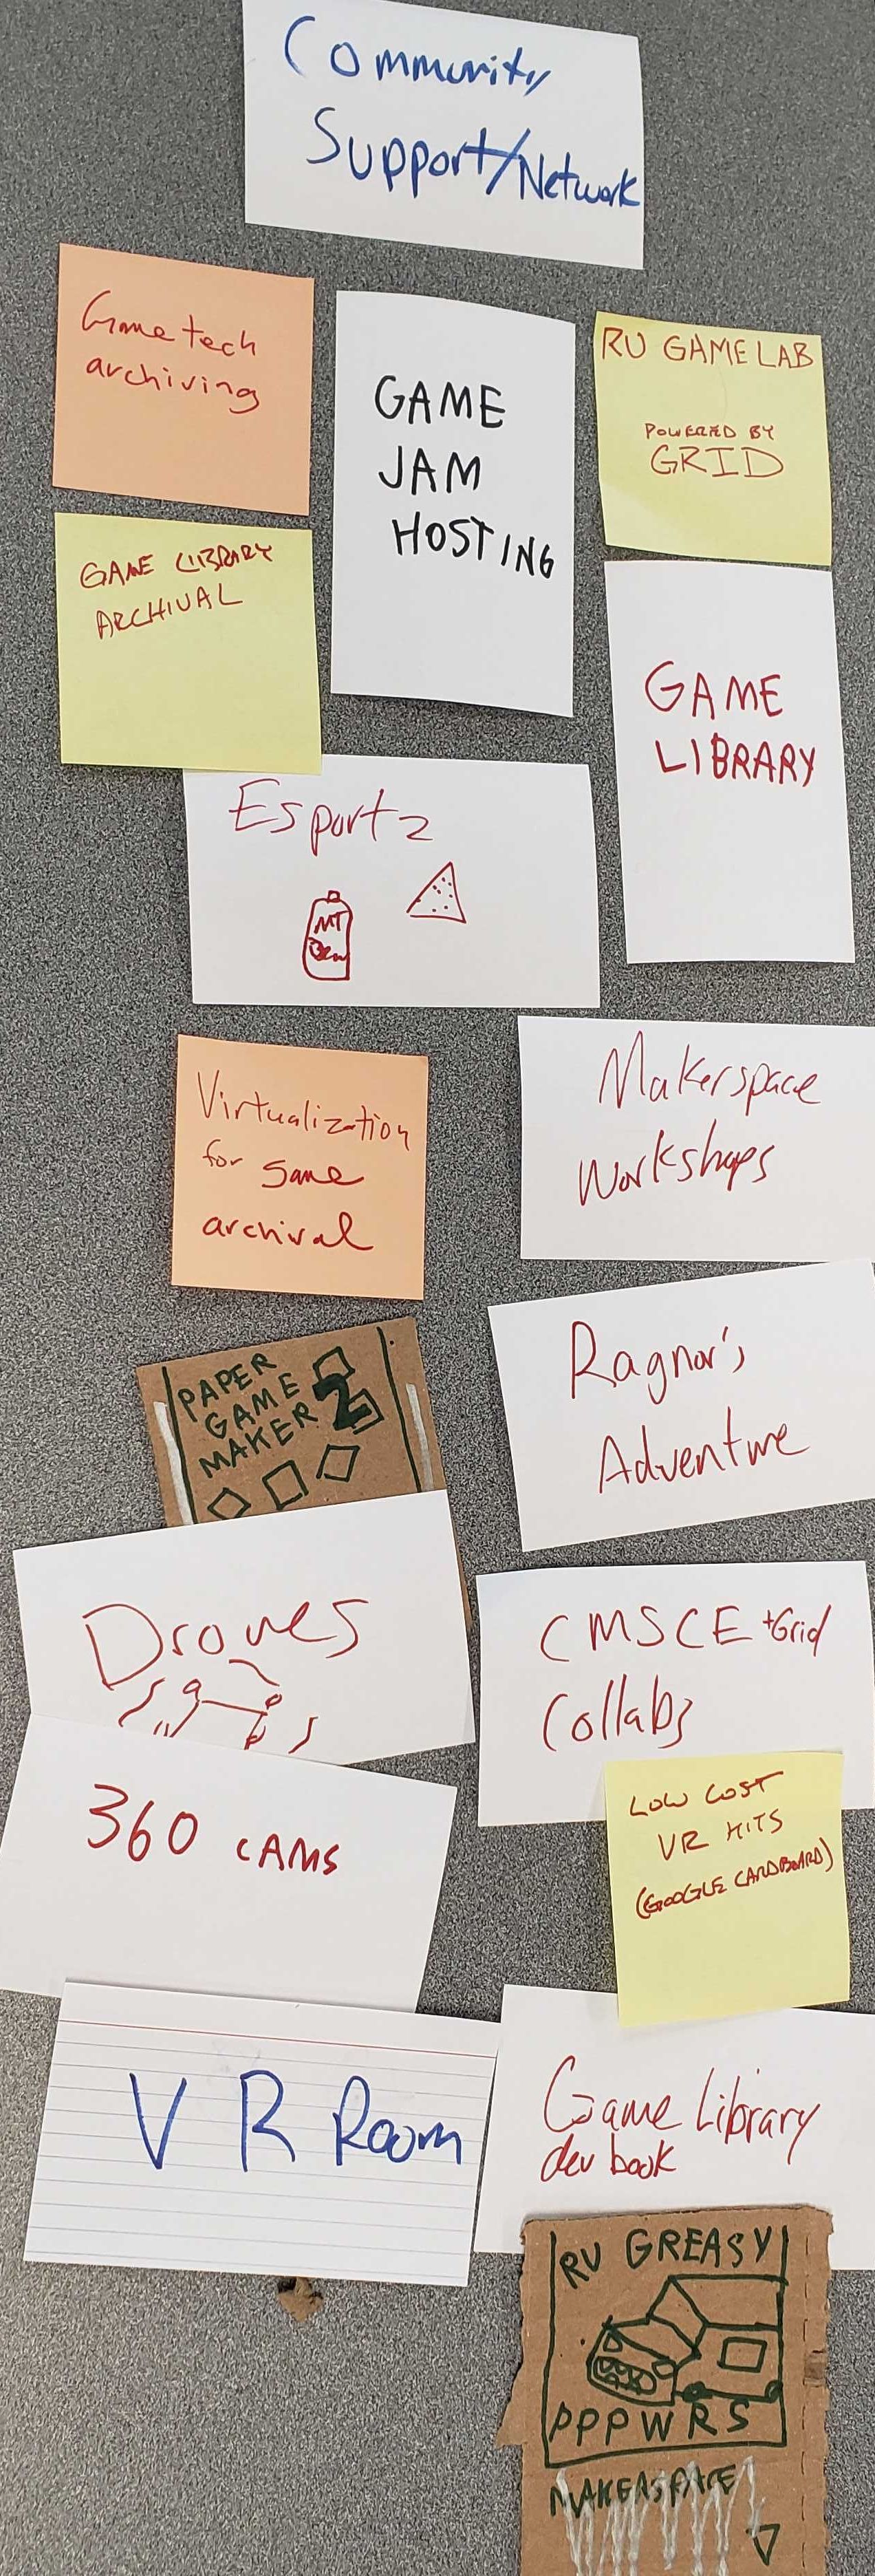 Community
Support/Network
Game tech
archiving
GAME
JAM
HOSTING
RU GAME LAB
POWERED BY
GRID
GAME LIBRARY
ARCHIVAL
GAME
LIBRARY
Esportz
MT
Dew
Virtualization
for game
archival
Makerspace
Workshops
Ragnar's
Adventure
PAPER
GAME
MAKER 2
Drones
CMSCE +Grid
Collabs
360 CAMS
LOW COST
VR KITS
(GOOGLE CARDBOARD)
VR Room
Game Library
dev book
RU GREASY
PPPWRS
MAKERSPACE